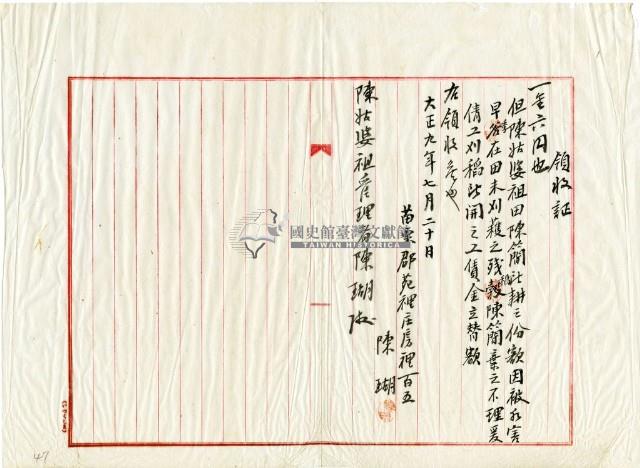 領收証
一金六円也
但陳姑婆祖田陳簡所耕之份額因被水害
早谷在田未刈獲之残穀陳簡棄之不理爰
倩工刈稻所開之工債金立替額
右領收候也
大正九年七月二十日
苗栗郡苑裡庄房裡百五
陳瑚
陳姑婆祖管理者陳瑚淑
國史館臺灣文獻館
TAIWAN HISTORICA
47